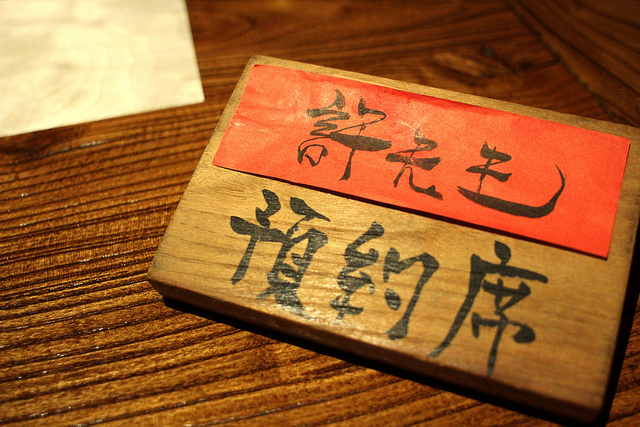 許先生
預約席